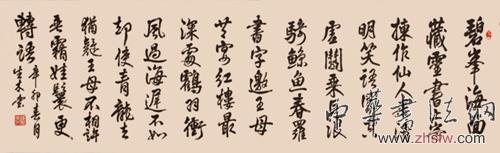 碧峯海面
藏靈書上帝
揀作仙人
明笑語聞空
虛鬬乘巨浪
騎鯨魚春羅
書字邀王母
共宴紅樓最
深處鶴羽衝
風過海遲不如
却使青龍去
猶疑王母不相許
垂霧娃鬟更
轉語
辛卯春月
華書法
www.zhsfw.com